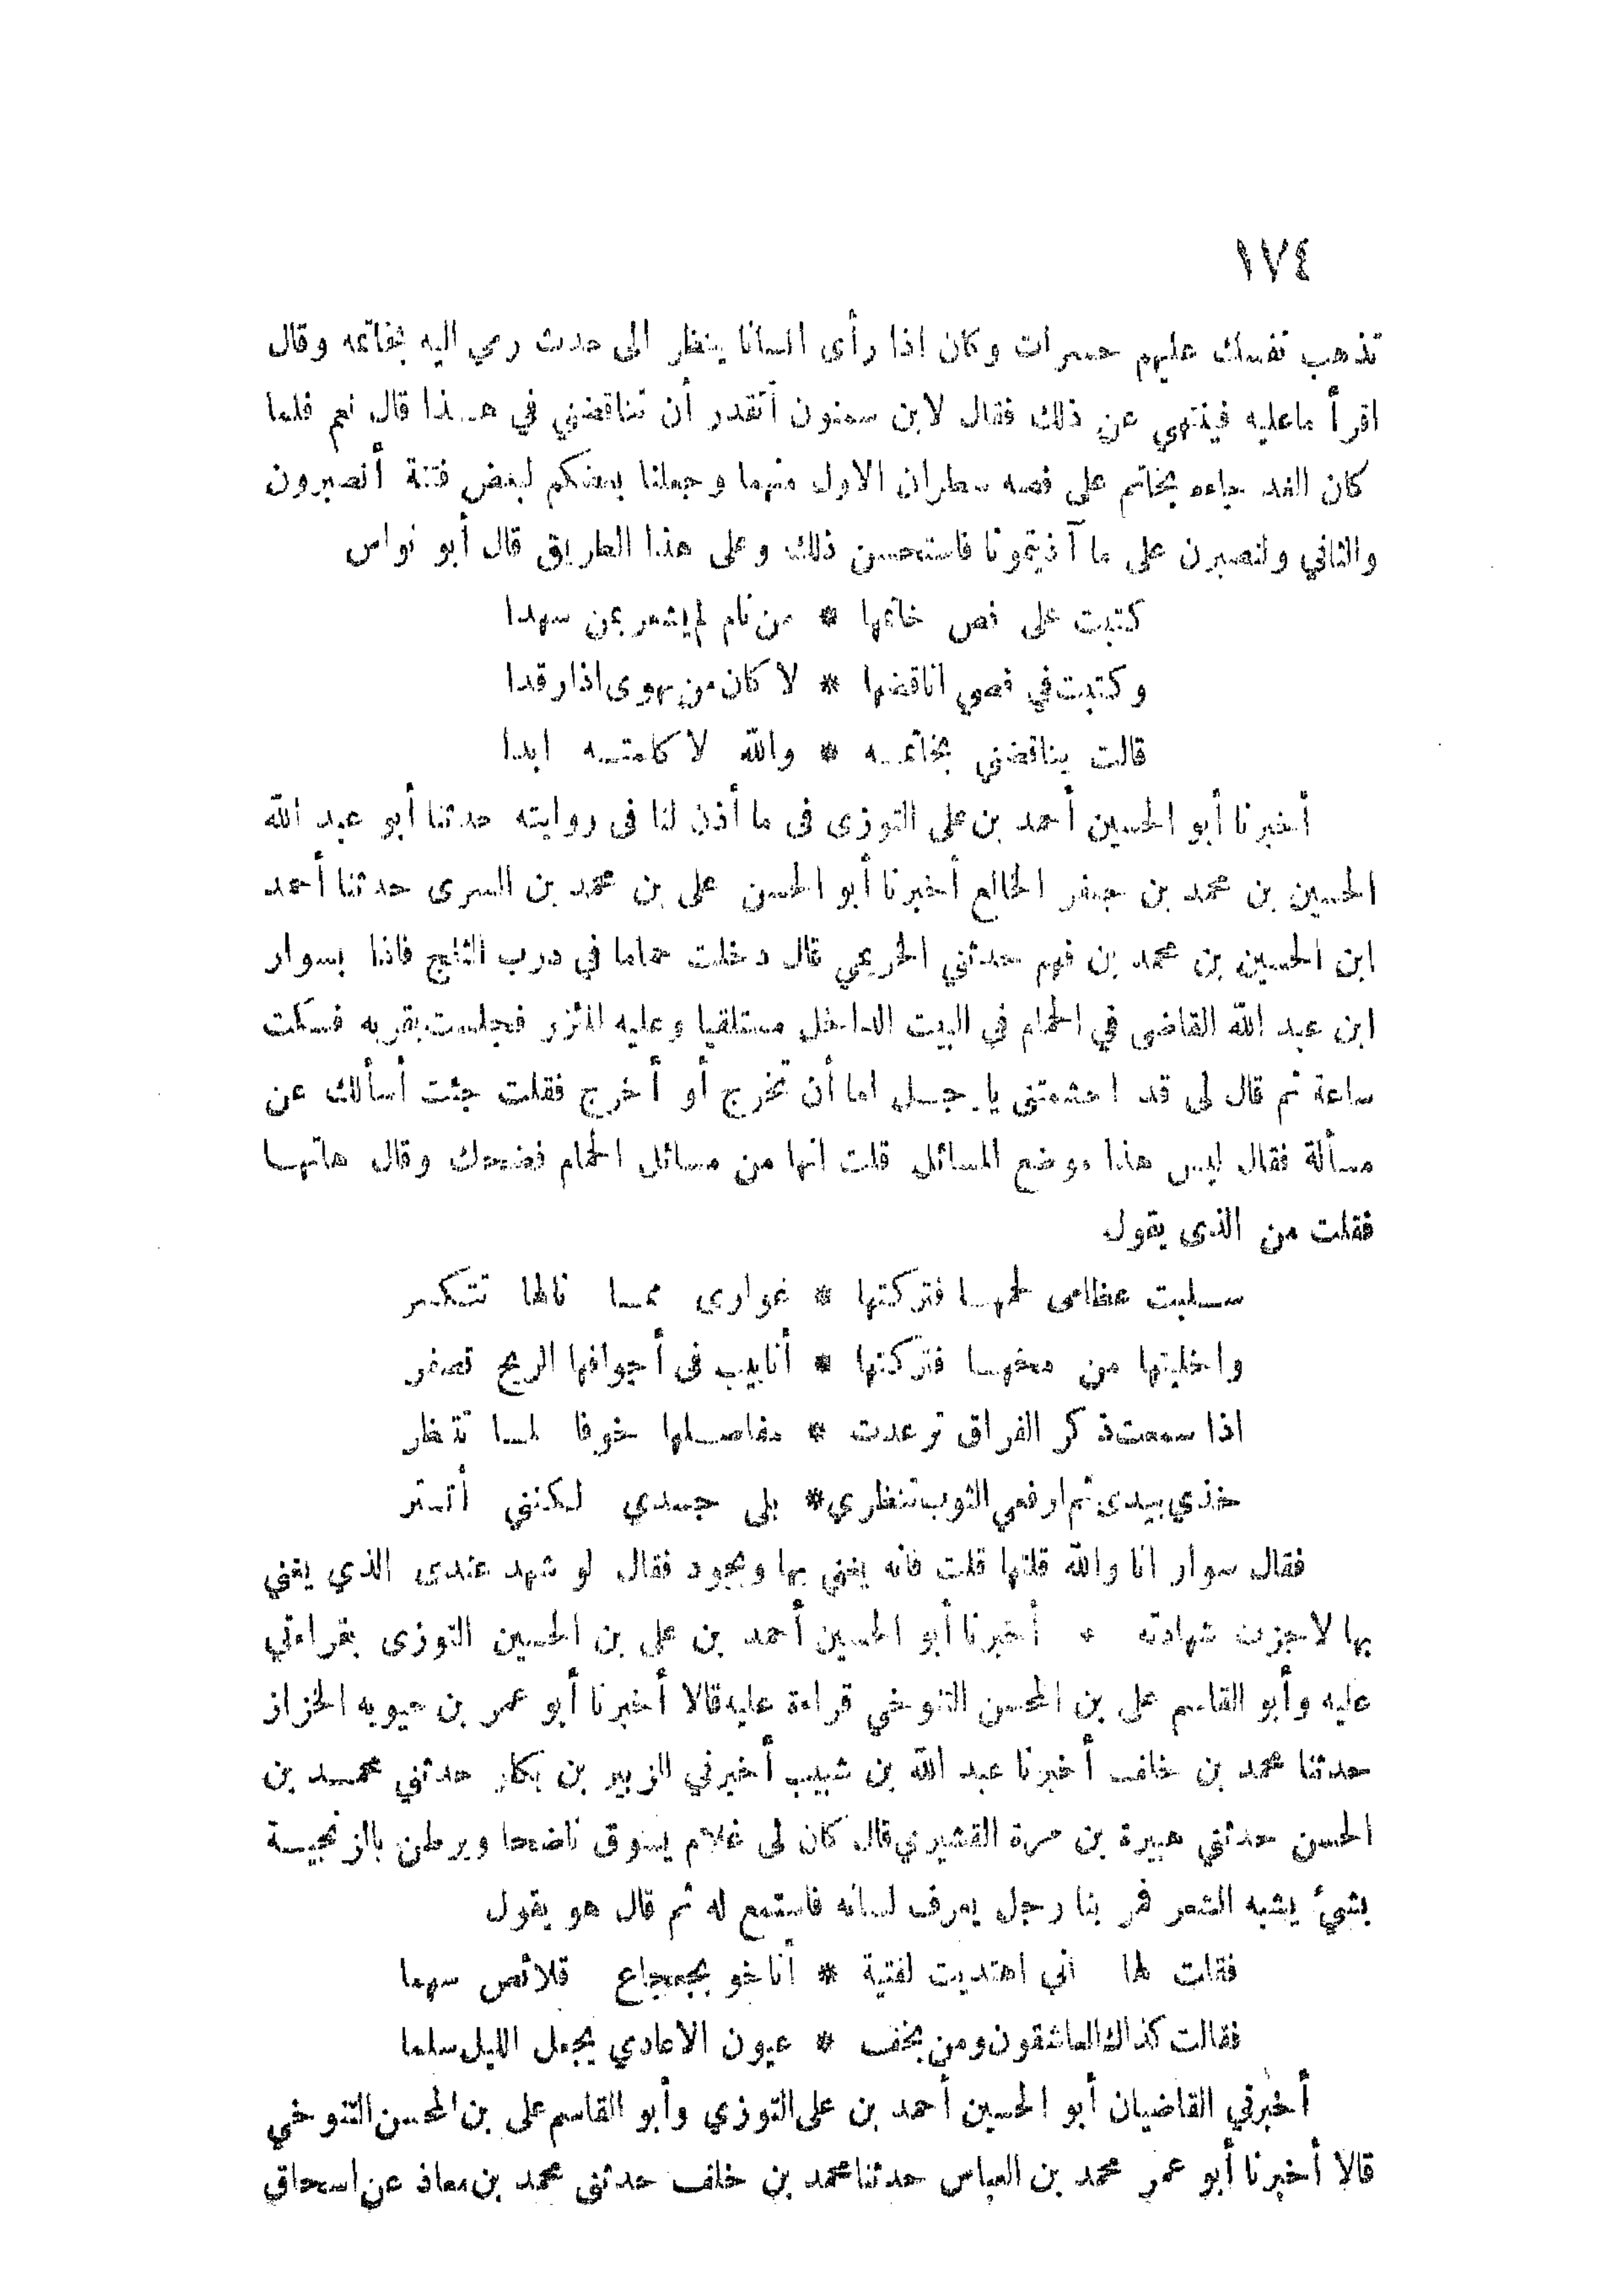 ١٧٤
تذهب نفسك عليهم حسرات وكان اذا رأى انسانا ينظر الى حدث رمي اليه بخاتمه وقال
اقرأ ماعليه فينتهي عن ذلك فقال لابن سمنون أتقدر أن تناقضني في هـذا قال نعم فلما
كان الغد جاءه بخاتم على فصه سطران الاول منهما وجعلنا بعضكم لبعض فتنة أتصبرون
والثاني ولنصبرن على ما آذيتمونا فاستحسن ذلك وعلى هذا الطريق قال أبو نواس
كتبت على فص خاتمها * من نام لم يشعر بمن سهدا
وكتبت في فصي اناقضها * لا كان من يهوى اذا رقدا
قالت يناقضني بخاتمـه * والله لا كلمتـه ابدا
أخبرنا أبو الحسين أحمد بن على التوزى فى ما أذن لنا فى روايته حدثنا أبو عبد الله
الحسين بن محمد بن جعفر الخالع أخبرنا أبو الحسن على بن محمد بن السرى حدثنا أحمد
ابن الحسين بن محمد بن فهم حدثني الخريمي قال دخلت حماما في درب الثلج فاذا بسوار
ابن عبد الله القاضى في الحمام في البيت الداخل مستلقيا وعليه المئزر فجلست بقربه فسكت
ساعة ثم قال لى قد احشمتنى يارجـل اما أن تخرج أو أخرج فقلت جئت أسألك عن
مسألة فقال ليس هذا موضع المسائل قلت انها من مسائل الحمام فضحك وقال هاتهـا
فقلت من الذى يقول
سـلبت عظامى لحمهـا فتركتها * عوارى ممـا نالها تتكسر
واخليتها من مخهـا فتركتها * أنابيب فى أجوافها الريح تصفر
اذا سمعت ذكر الفراق ترعدت * مفاصـلها خوفا لمـا تنظر
خذي بيدى ثم ارفعي الثوب تنظري * بلى جسدي لكنني أتستر
فقال سوار انا والله قلتها قلت فانه يغني بها ويجود فقال لو شهد عندى الذي يغني
بها لاجزت شهادته * أخبرنا أبو الحسين أحمد بن على بن الحسين التوزى بقراءتي
عليه وأبو القاسم على بن المحسن التنوخي قراءة عليه قالا أخبرنا أبو عمر بن حيويه الخزاز
حدثنا محمد بن خلف أخبرنا عبد الله بن شبيب أخبرني الزبير بن بكار حدثني محمـد بن
الحسن حدثني هبيرة بن مرة القشيري قال كان لى غلام يسوق ناضحا ويرطن بالزنجيـة
بشيء يشبه الشعر فمر بنا رجل يعرف لسانه فاستمع له ثم قال هو يقول
فقلت لها اني اهتديت لفتية * أناخو بجعجاع قلائص سهما
فقالت كذاك العاشقون ومن يخف * عيون الاعادي يجعل الليل سلما
أخبرني القاضيان أبو الحسين أحمد بن على التوزي وأبو القاسم على بن المحسن التنوخي
قالا أخبرنا أبو عمر محمد بن العباس حدثنا محمد بن خلف حدثنى محمد بن معاذ عن اسحاق